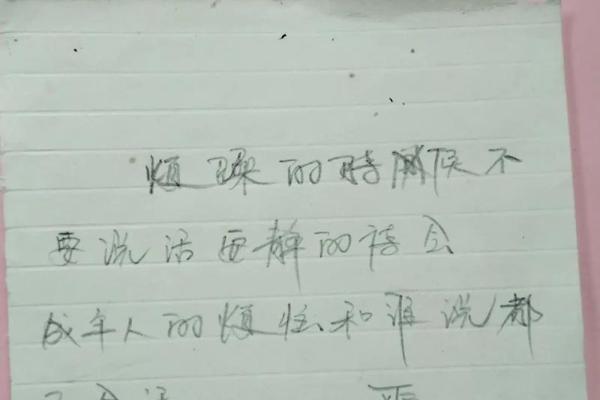 烦躁的时候不
要说话安静的待会
成年人的烦恼和谁说都